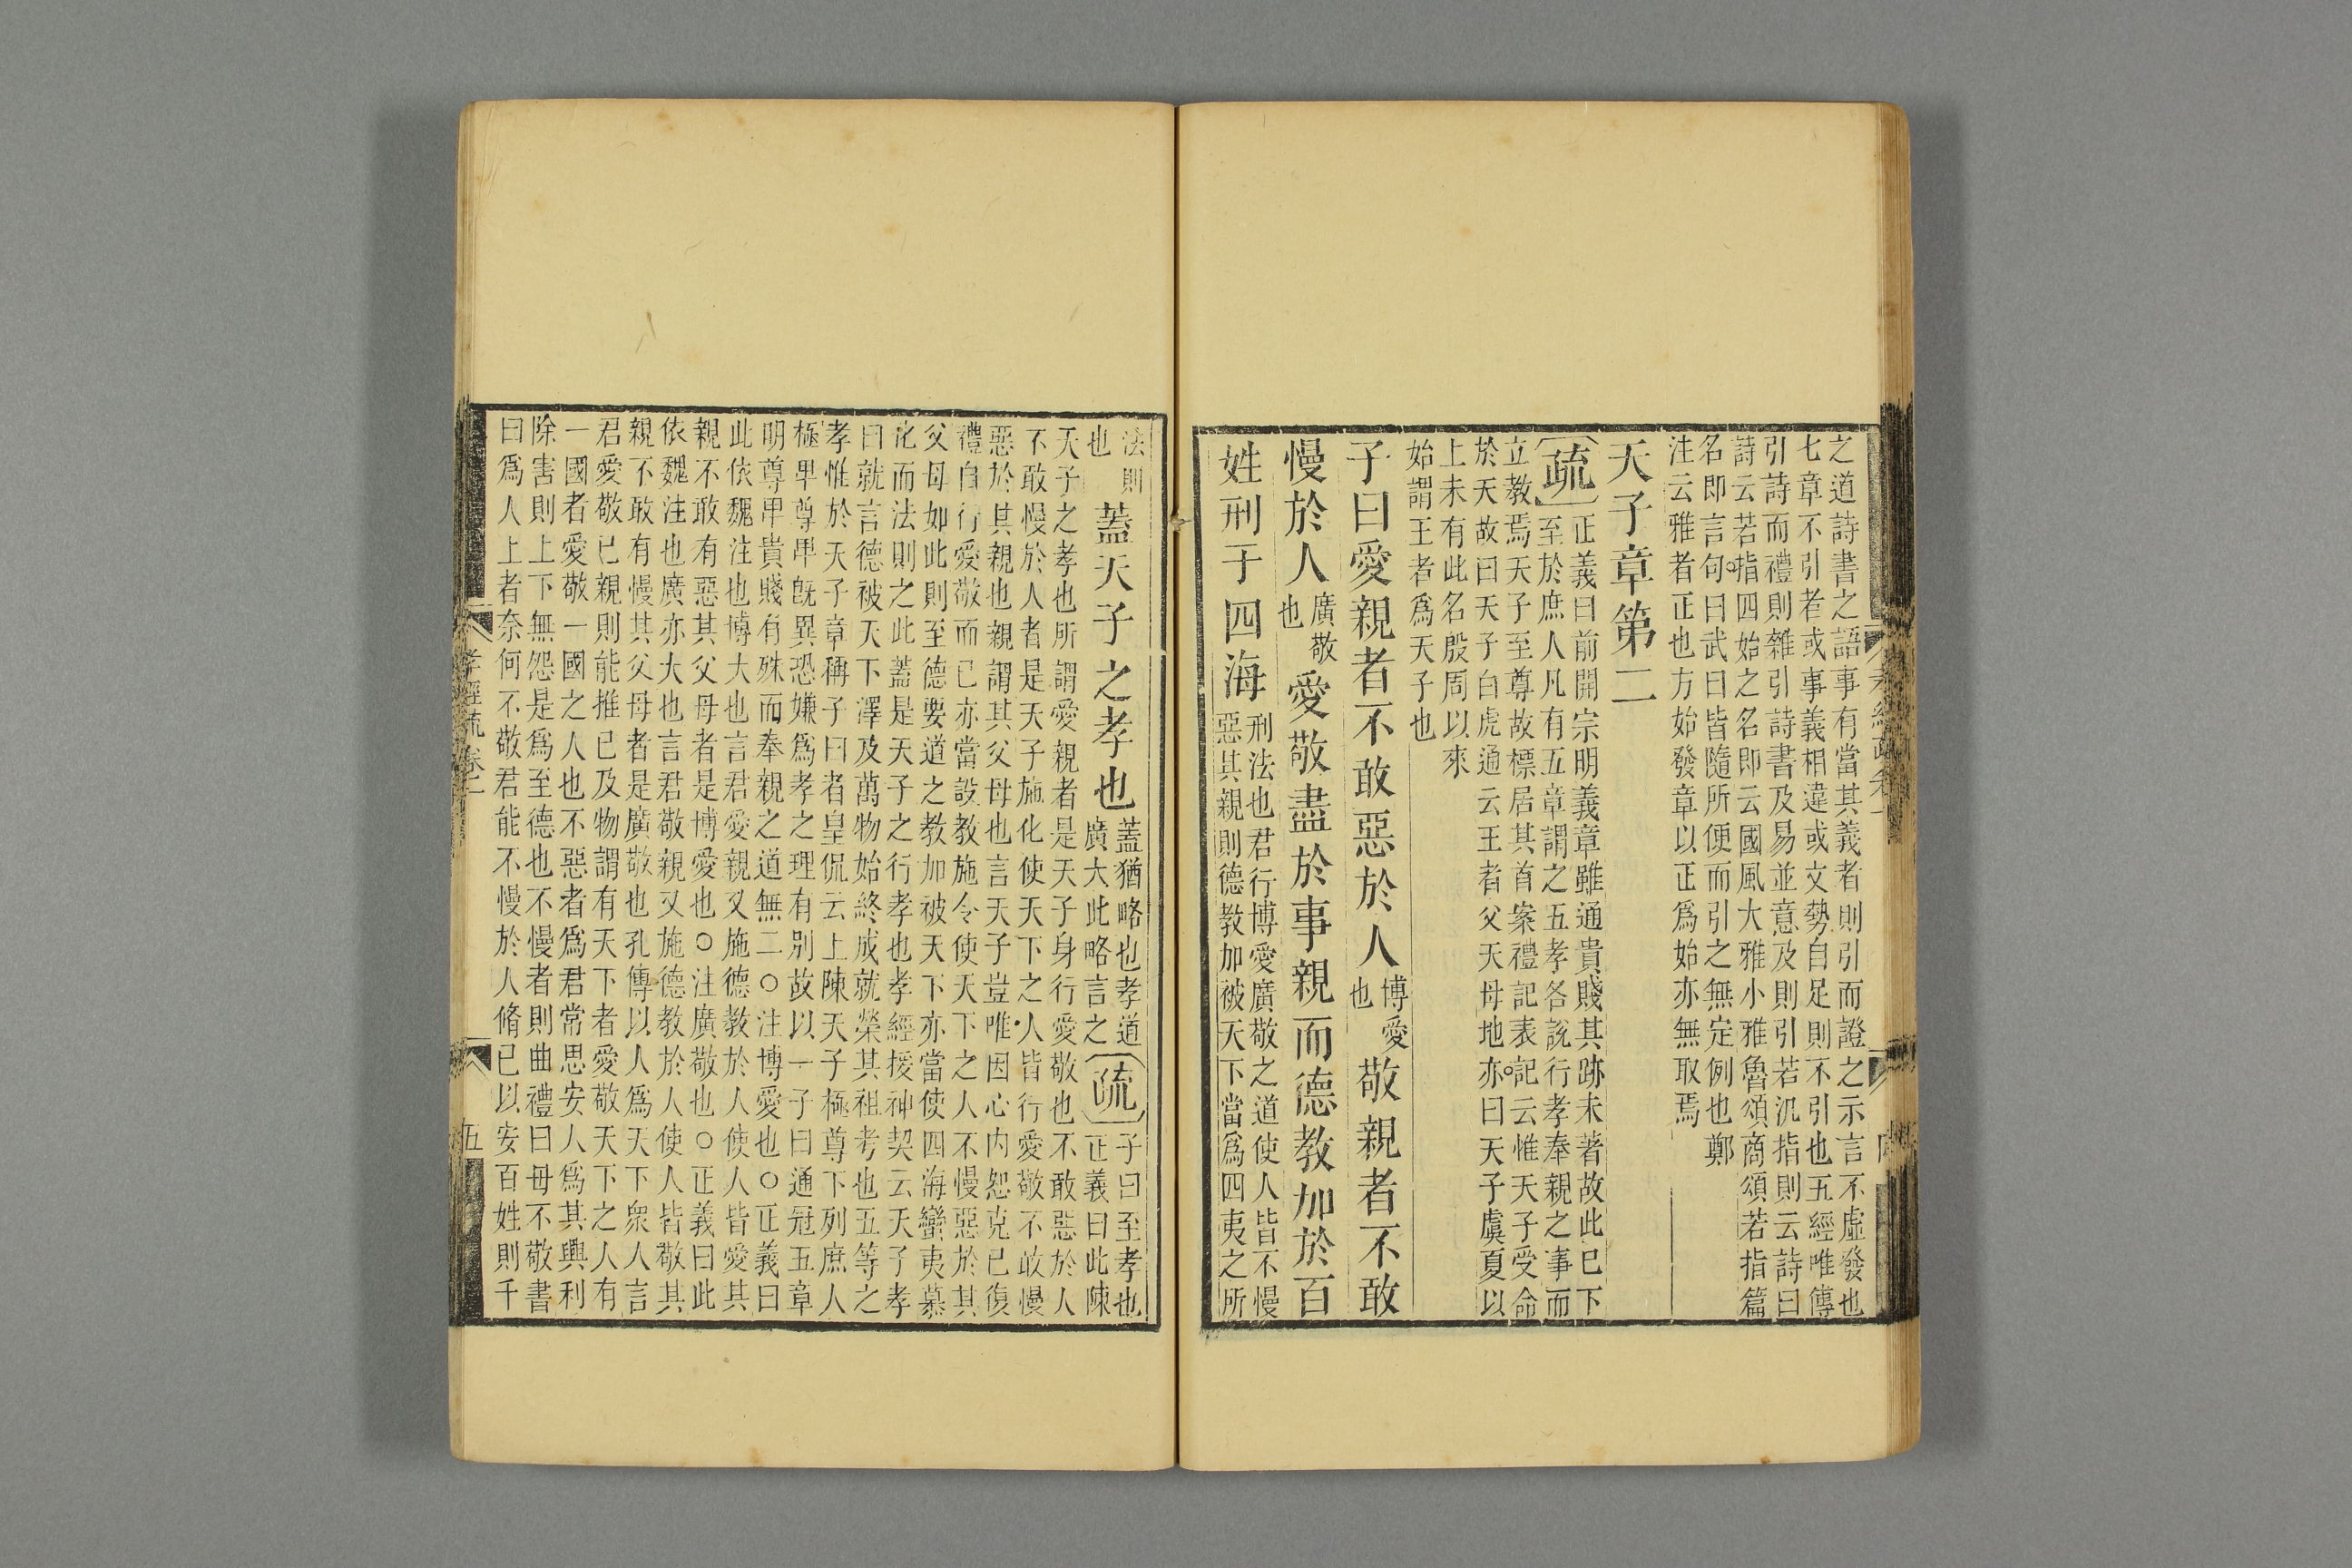 之道詩書之語事有當其義者則引而證之示言不虛發也
七章不引者或事義相違或文勢自足則不引也五經唯傳
引詩而禮則雜引詩書及易並意及則引若汎指則云詩曰
詩云若指四始之名即云國風大雅小雅魯頌商頌若指篇
名即言句曰武曰皆隨所便而引之無定例也鄭
注云雅者正也方始發章以正爲始亦無取焉
天子章第二
疏
正義曰前開宗明義章雖通貴賤其跡未著故此已下
至於庶人凡有五章謂之五孝各說行孝奉親之事而
立教焉天子至尊故標居其首案禮記表記云惟天子受命
於天故曰天子白虎通云王者父天母地亦曰天子虞夏以
上未有此名殷周以來
始謂王者爲天子也
子曰愛親者不敢惡於人
博愛
也
敬親者不敢
慢於人
廣敬
也
愛敬盡於事親而德教加於百
姓刑于四海
刑法也君行博愛廣敬之道使人皆不慢
惡其親則德教加被天下當爲四夷之所
法則
也
蓋天子之孝也
蓋猶略也孝道
廣大此略言之
疏
子曰至孝也
正義曰此陳
天子之孝也所謂愛親者是天子身行愛敬也不敢惡於人
不敢慢於人者是天子施化使天下之人皆行愛敬不敢慢
惡於其親也親謂其父母也言天子豈唯因心内恕克己復
禮自行愛敬而已亦當設教施令使天下之人不慢惡於其
父母如此則至德要道之教加被天下亦當使四海蠻夷慕
化而法則之此蓋是天子之行孝也孝經援神契云天子孝
曰就言德被天下澤及萬物始終成就榮其祖考也五等之
孝惟於天子章稱子曰者皇侃云上陳天子極尊下列庶人
極卑尊卑旣異恐嫌爲孝之理有别故以一子曰通冠五章
明尊卑貴賤有殊而奉親之道無二○注博愛也○正義曰
此依魏注也博大也言君愛親又施德教於人使人皆愛其
親不敢有惡其父母者是博愛也○注廣敬也○正義曰此
依魏注也廣亦大也言君敬親又施德教於人使人皆敬其
親不敢有慢其父母者是廣敬也孔傳以人爲天下衆人言
君愛敬已親則能推已及物謂有天下者愛敬天下之人有
一國者愛敬一國之人也不惡者爲君常思安人爲其興利
除害則上下無怨是爲至德也不慢者則曲禮曰毋不敬書
曰爲人上者奈何不敬君能不慢於人脩已以安百姓則千
孝經疏卷一
五